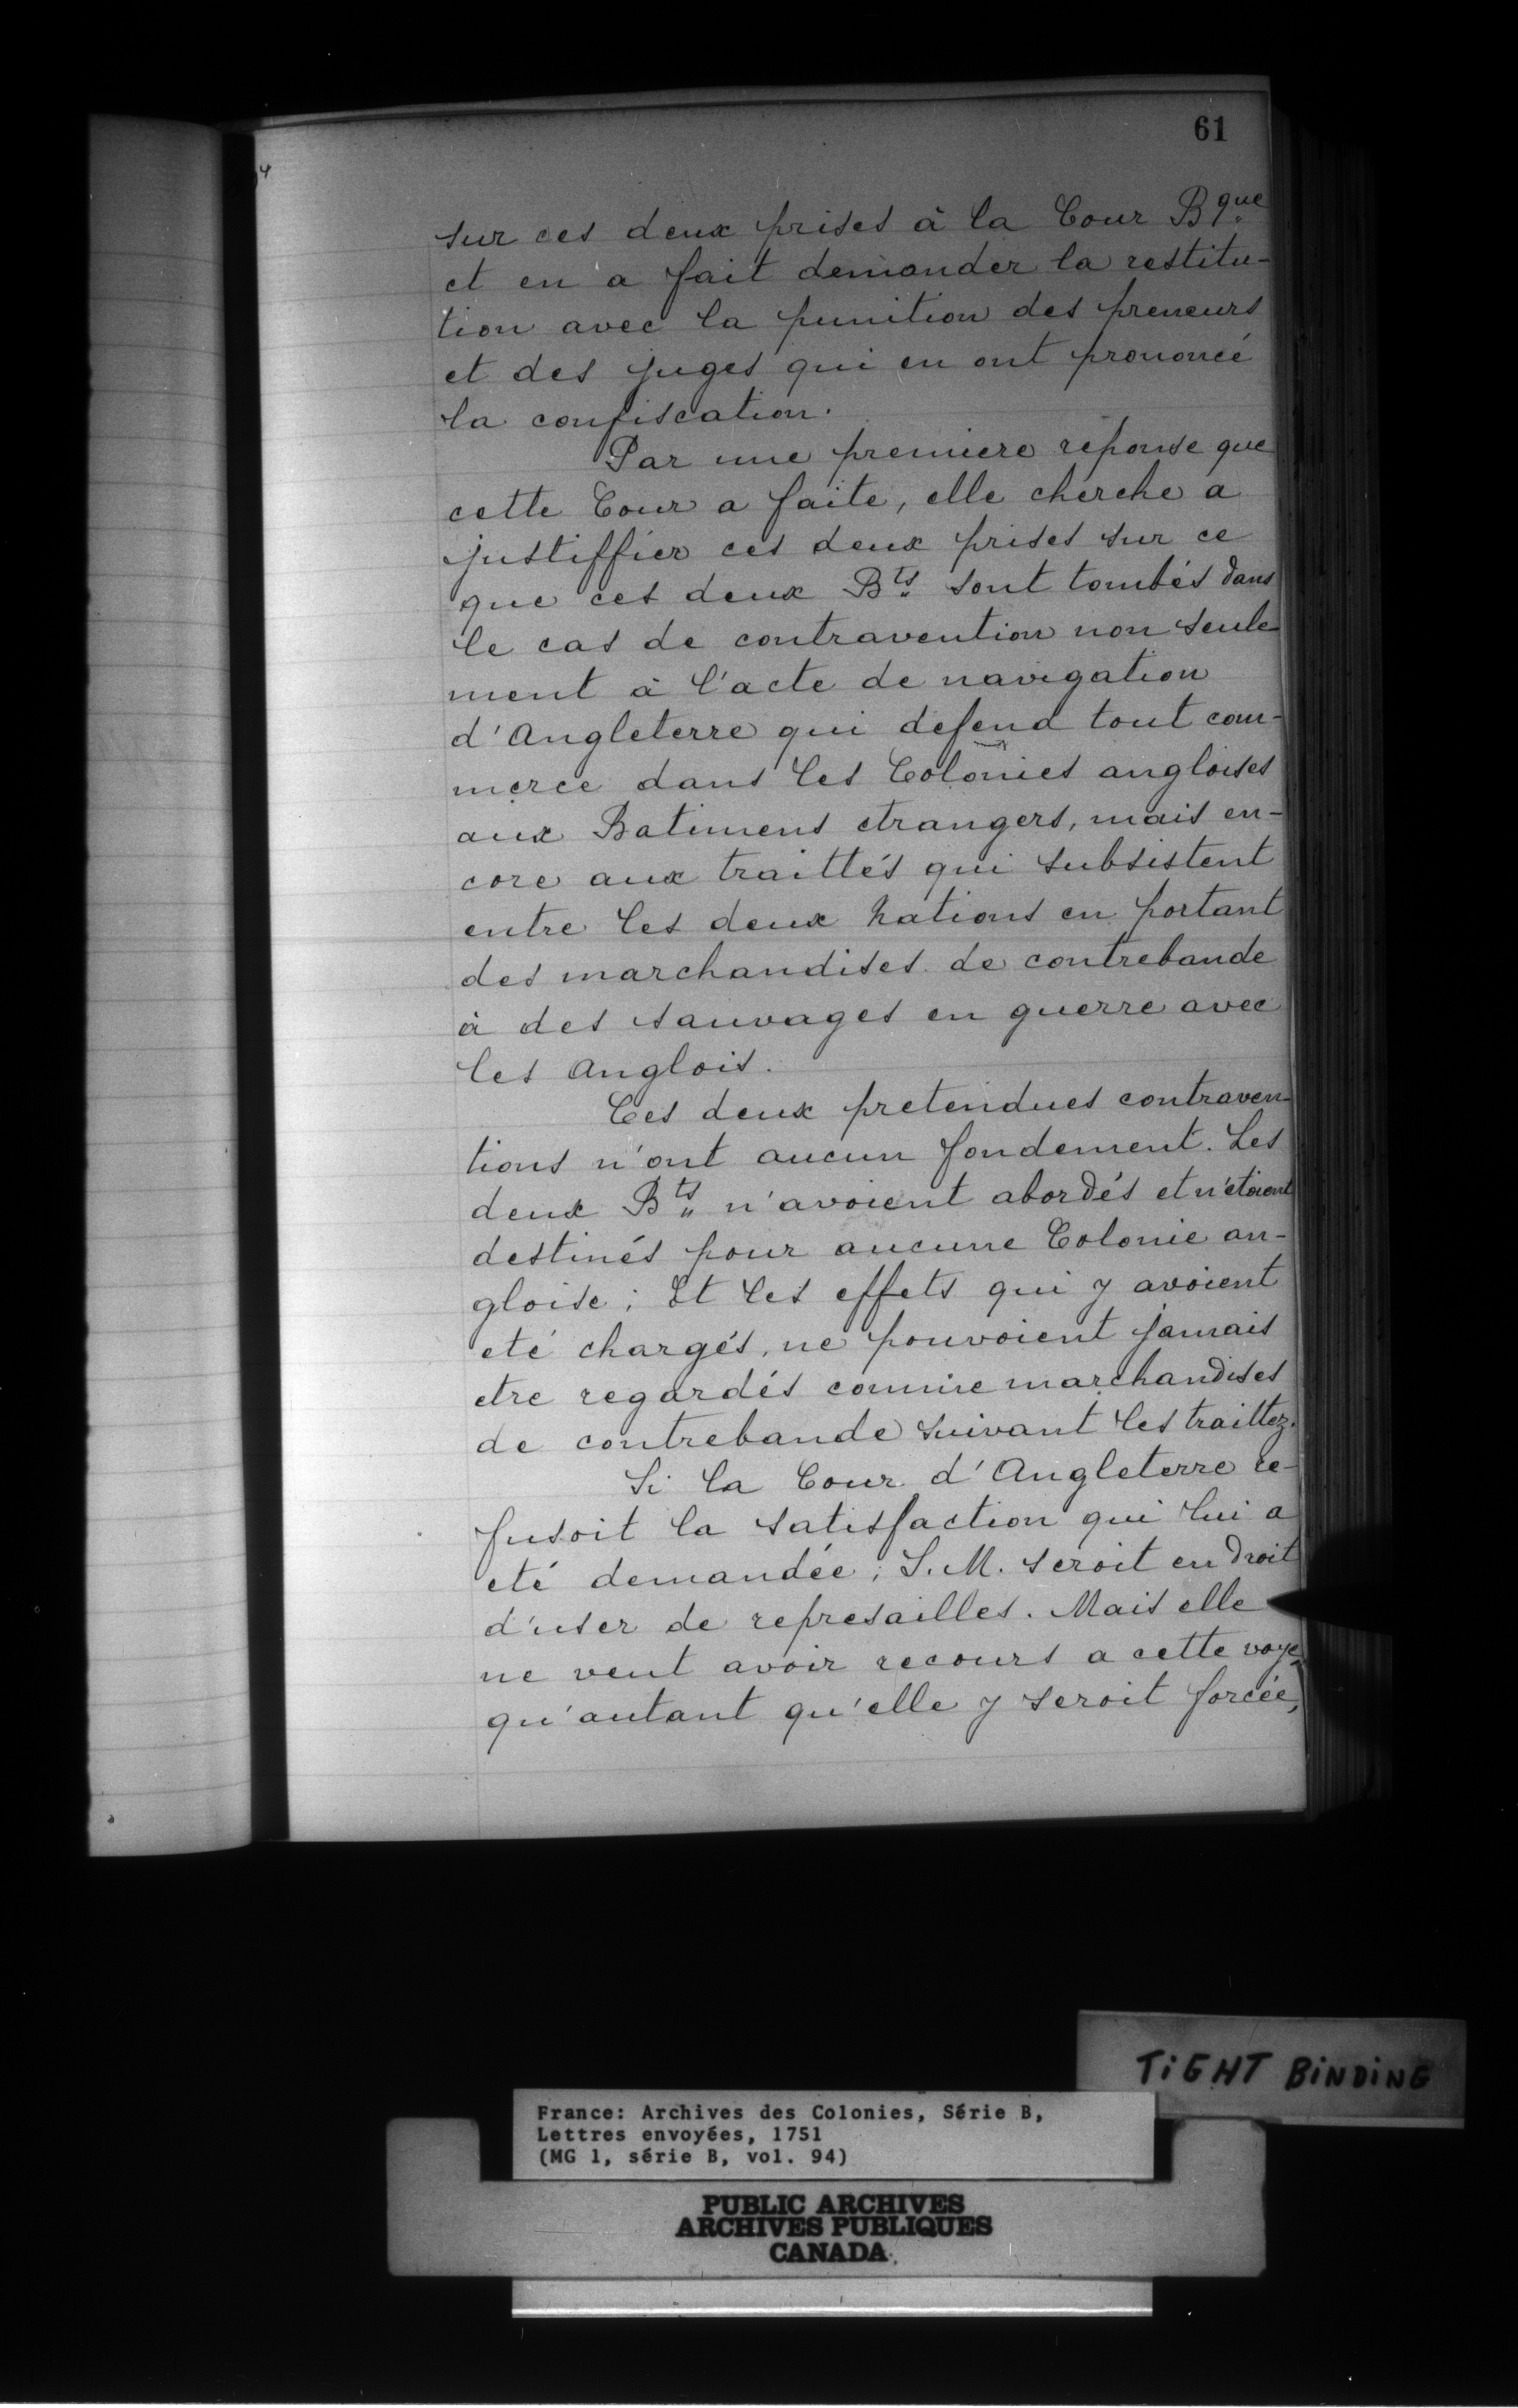 61
sur ces deux prises à la Cour Bque
et en a fait demander la restitu-
tion avec la punition des preneurs
et des juges qui en ont prononcé
la confiscation.
Par une premiere reponse que
cette Cour a faite, elle cherche a
justiffier ces deux prises sur ce
que ces deux Bts sont tombés dans
le cas de contravention non seule-
ment à l'acte de navigation
d'Angleterre qui defend tout com-
merce dans les Colonies angloises
aux Batimens etrangers, mais en-
core aux traittés qui subsistent
entre les deux Nations en portant
des marchandises de contrebande
à des sauvages en guerre avec
les Anglois.
Ces deux pretendues contraven-
tions n'ont aucun fondement. Les
deux Bts n'avoient abordés et n'étoient
destinés pour aucune Colonie an-
gloise; Et les effets qui y avoient
eté chargés, ne pouvoient jamais
etre regardés comme marchandises
de contrebande suivant les traittez.
Si la Cour d'Angleterre re-
fusoit la satisfaction qui lui a
eté demandée; S. M. seroit en droit
d'user de represailles. Mais elle
ne veut avoir recours a cette voye
qu'autant qu'elle y seroit forcée,
TiGHT BiNDiNG
France: Archives des Colonies, Série B,
Lettres envoyées, 1751
(MG 1, série B, vol. 94)
PUBLIC ARCHIVES
ARCHIVES PUBLIQUES
CANADA